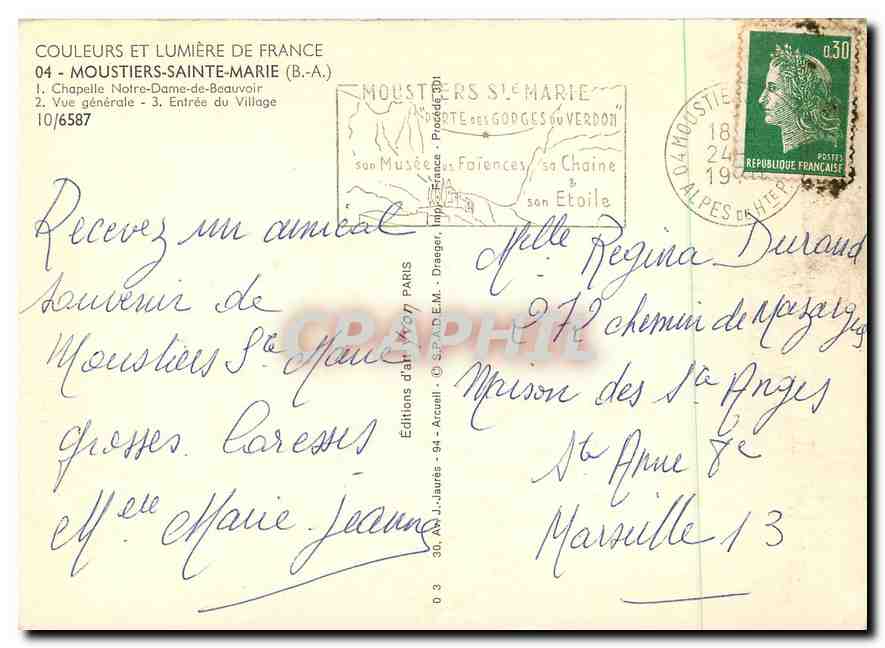 COULEURS ET LUMIÈRE DE FRANCE
04 - MOUSTIERS-SAINTE-MARIE (B.-A.)
1. Chapelle Notre-Dame-de-Beauvoir
2. Vue générale - 3. Entrée du Village
10/6587
MOUSTIERS Ste MARIE
"PORTE des GORGES du VERDON"
son Musée des Faïences sa Chaine
&
son Etoile
04 MOUSTIE
18
24
19
ALPES DE Hte P
0.30
POSTES
REPUBLIQUE FRANÇAISE
Recevez un amical
souvenir de
Moustiers Ste Marie
grosses Caresses
Marie-Jeanne
Editions d'art yvon PARIS
D 3 30, Av. J.-Jaurès - 94 - Arcueil - © S.P.A.D.E.M. - Draeger, Imp. France - Procédé 301
Melle Regina Durand
272 chemin de Mazargues
Maison des Sts Anges
Ste Anne 8e
Marseille 13
CPAPHIL